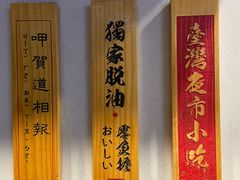 呷賀道相報
獨家脱油
おいしい
臺灣夜市小吃